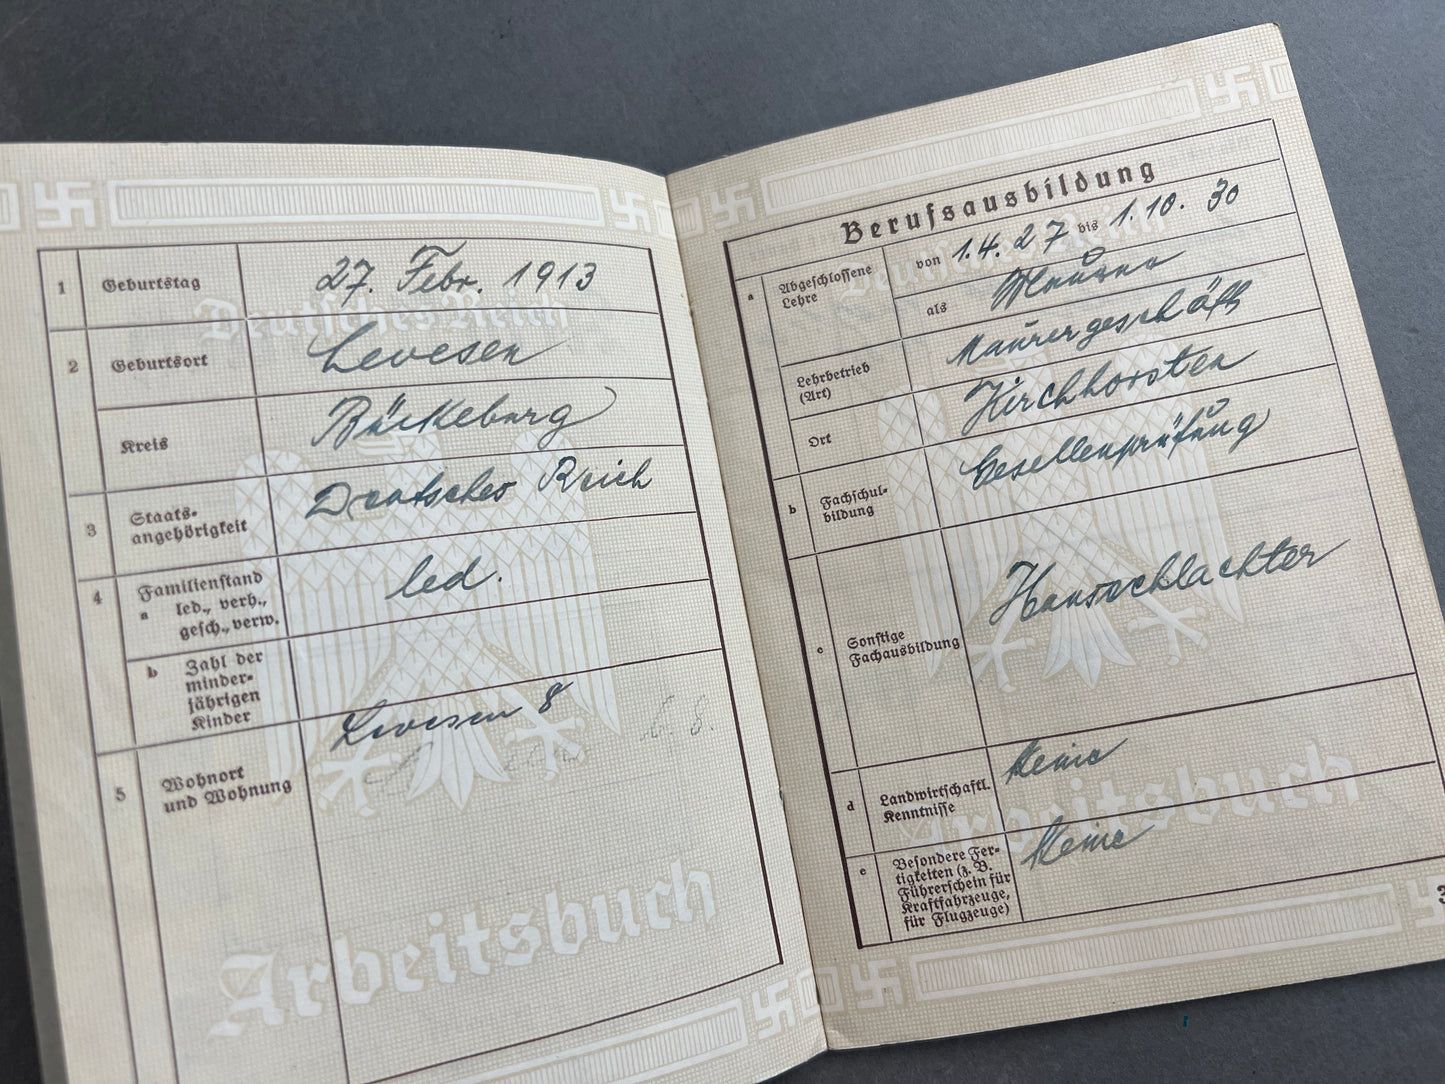 Deutsches Reich
1 Geburtstag 27. Febr. 1913
2 Geburtsort Levesen
Kreis Bückeburg
3 Staats-
angehörigkeit Deutsches Reich
4 Familienstand
a led., verh.,
gesch., verw. led.
b Zahl der
minder-
jährigen
Kinder
5 Wohnort
und Wohnung Levesen 8
8.
Arbeitsbuch
Berufsausbildung
Deutsches Reich
a Abgeschlossene
Lehre von 1.4.27 bis 1.10.30
als Maurer
Lehrbetrieb
(Art) Maurergeschäft
Ort Kirchhorsten
b Fachschul-
bildung Gesellenprüfung
c Sonstige
Fachausbildung Hausschlachter
d Landwirtschaftl.
Kenntnisse Keine
e Besondere Fer-
tigkeiten (z. B.
Führerschein für
Kraftfahrzeuge,
für Flugzeuge) Keine
Arbeitsbuch
3